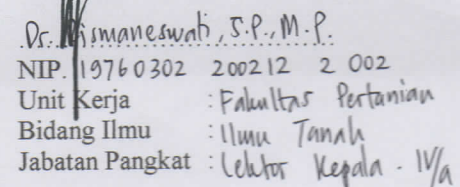 Dr. Wismaneswati, S.P., M.P.
NIP. 19760302 200212 2 002
Unit Kerja : Fakultas Pertanian
Bidang Ilmu : Ilmu Tanah
Jabatan Pangkat : Lektor Kepala - IV/a